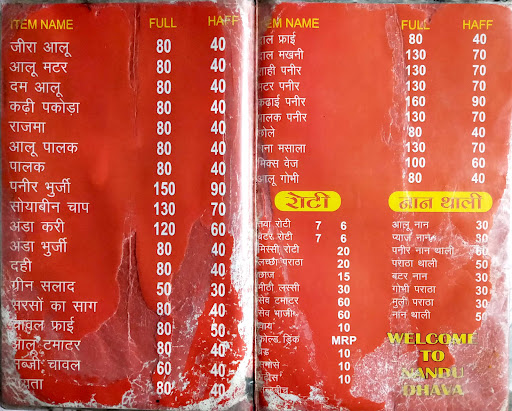 ITEM NAME FULL HAFF
जीरा आलू 80 40
आलू मटर 80 40
दम आलू 80 40
कढ़ी पकोड़ा 80 40
राजमा 80 40
आलू पालक 80 40
पालक 80 40
पनीर भुर्जी 150 90
सोयाबीन चाप 130 70
अंडा करी 120 60
अंडा भुर्जी 80 40
दही 80 40
ग्रीन सलाद 50 30
सरसों का साग 80 40
चावल फ्राई 80 50
आलू टमाटर 80 40
सब्जी चावल 60 40
80 40
ITEM NAME FULL HAFF
दाल फ्राई 80 40
दाल मखनी 130 70
शाही पनीर 130 70
मटर पनीर 130 70
कढ़ाई पनीर 160 90
पालक पनीर 130 70
छोले 80 40
चना मसाला 130 70
मिक्स वेज 100 60
आलू गोभी 80 40
रोटी
तवा रोटी 7 6
बटर रोटी 7 6
मिस्सी रोटी 20
लच्छा पराठा 20
छाज 15
मीठी लस्सी 30
सेव टमाटर 60
सेव भाजी 60
चाय 10
कोल्ड ड्रिंक MRP
10
समोसे 10
10
नान थाली
आलू नान 30
प्याज नान 30
पनीर नान थाली 60
पराठा थाली 50
बटर नान 30
गोभी पराठा 30
मुली पराठा 30
नान थाली 50
WELCOME
TO
NANDU
DHAVA